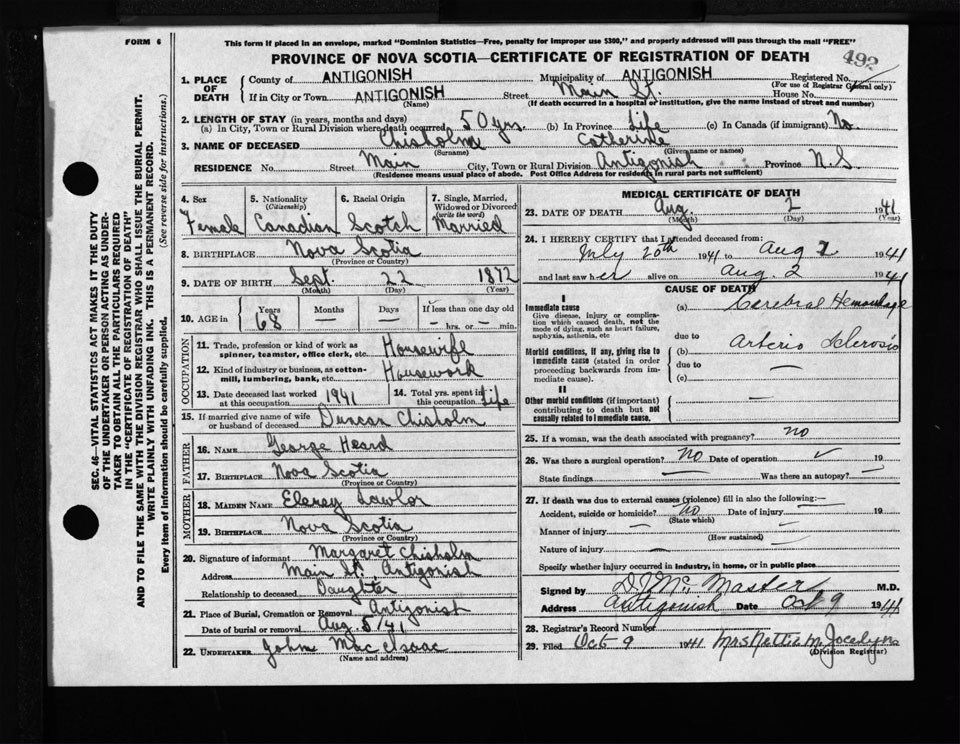 FORM 6
This form if placed in an envelope, marked "Dominion Statistics—Free, penalty for improper use $300," and properly addressed will pass through the mail "FREE"
PROVINCE OF NOVA SCOTIA—CERTIFICATE OF REGISTRATION OF DEATH
492
1. PLACE OF DEATH
County of ANTIGONISH Municipality of ANTIGONISH Registered No.
(For use of Registrar General only)
If in City or Town ANTIGONISH Street Main St. House No.
(Name) (If death occurred in a hospital or institution, give the name instead of street and number)
2. LENGTH OF STAY (in years, months and days)
(a) In City, Town or Rural Division where death occurred 50 yrs. (b) In Province Life (c) In Canada (if immigrant) No.
3. NAME OF DECEASED Chisholm Catherine
(Surname) (Given name or names)
RESIDENCE No. Street Main City, Town or Rural Division Antigonish Province N.S
(Residence means usual place of abode. Post Office Address for residents in rural parts not sufficient)
4. Sex
Female
5. Nationality
(Citizenship)
Canadian
6. Racial Origin
Scotch
7. Single, Married, Widowed or Divorced
(write the word)
Married
8. BIRTHPLACE Nova Scotia
(Province or Country)
9. DATE OF BIRTH Sept. 22 1872
(Month) (Day) (Year)
10. AGE in Years Months Days If less than one day old
68 — — — hrs. or — min.
OCCUPATION
11. Trade, profession or kind of work as spinner, teamster, office clerk, etc. Housewife
12. Kind of industry or business, as cotton-mill, lumbering, bank, etc. Housework
13. Date deceased last worked at this occupation 1941
14. Total yrs. spent in this occupation Life
15. If married give name of wife or husband of deceased Duncan Chisholm
FATHER
16. NAME George Heard
17. BIRTHPLACE Nova Scotia
(Province or Country)
MOTHER
18. MAIDEN NAME Lawlor
19. BIRTHPLACE Nova Scotia
(Province or Country)
20. Signature of informant Margaret Chisholm
Address Main St. Antigonish
Relationship to deceased Daughter
21. Place of Burial, Cremation or Removal Antigonish
Date of burial or removal Aug. 5/41
22. UNDERTAKER John MacIsaac
(Name and address)
MEDICAL CERTIFICATE OF DEATH
23. DATE OF DEATH Aug. 2 1941
(Month) (Day) (Year)
24. I HEREBY CERTIFY that I attended deceased from:
July 20th 1941 to Aug 2 1941
and last saw her alive on Aug. 2 1941
CAUSE OF DEATH
I
Immediate cause (a) Cerebral Hemorrhage
Give disease, injury or complication which caused death, not the mode of dying, such as heart failure, asphyxia, asthenia, etc
due to
Morbid conditions, if any, giving rise to immediate cause (stated in order proceeding backwards from immediate cause).
(b) Arterio Sclerosis
due to —
(c)
II
Other morbid conditions (if important) contributing to death but not causally related to immediate cause. —
25. If a woman, was the death associated with pregnancy? no
26. Was there a surgical operation? No Date of operation 19
State findings — Was there an autopsy? —
27. If death was due to external causes (violence) fill in also the following:—
Accident, suicide or homicide? No Date of injury — 19
(State which)
Manner of injury — —
(How sustained)
Nature of injury — —
Specify whether injury occurred in industry, in home, or in public place
Signed by Mc Master M.D.
Address Antigonish Date Oct 9 1941
28. Registrar's Record Number
29. Filed Oct 9 1941 Mrs Nattie M. Jocelyn
(Division Registrar)
SEC. 46—VITAL STATISTICS ACT MAKES IT THE DUTY
OF THE UNDERTAKER OR PERSON ACTING AS UNDER-
TAKER TO OBTAIN ALL THE PARTICULARS REQUIRED
IN THE "CERTIFICATE OF REGISTRATION OF DEATH"
AND TO FILE THE SAME WITH THE DIVISION REGISTRAR WHO SHALL ISSUE THE BURIAL PERMIT.
WRITE PLAINLY WITH UNFADING INK. THIS IS A PERMANENT RECORD.
Every item of information should be carefully supplied. (See reverse side for instructions.)